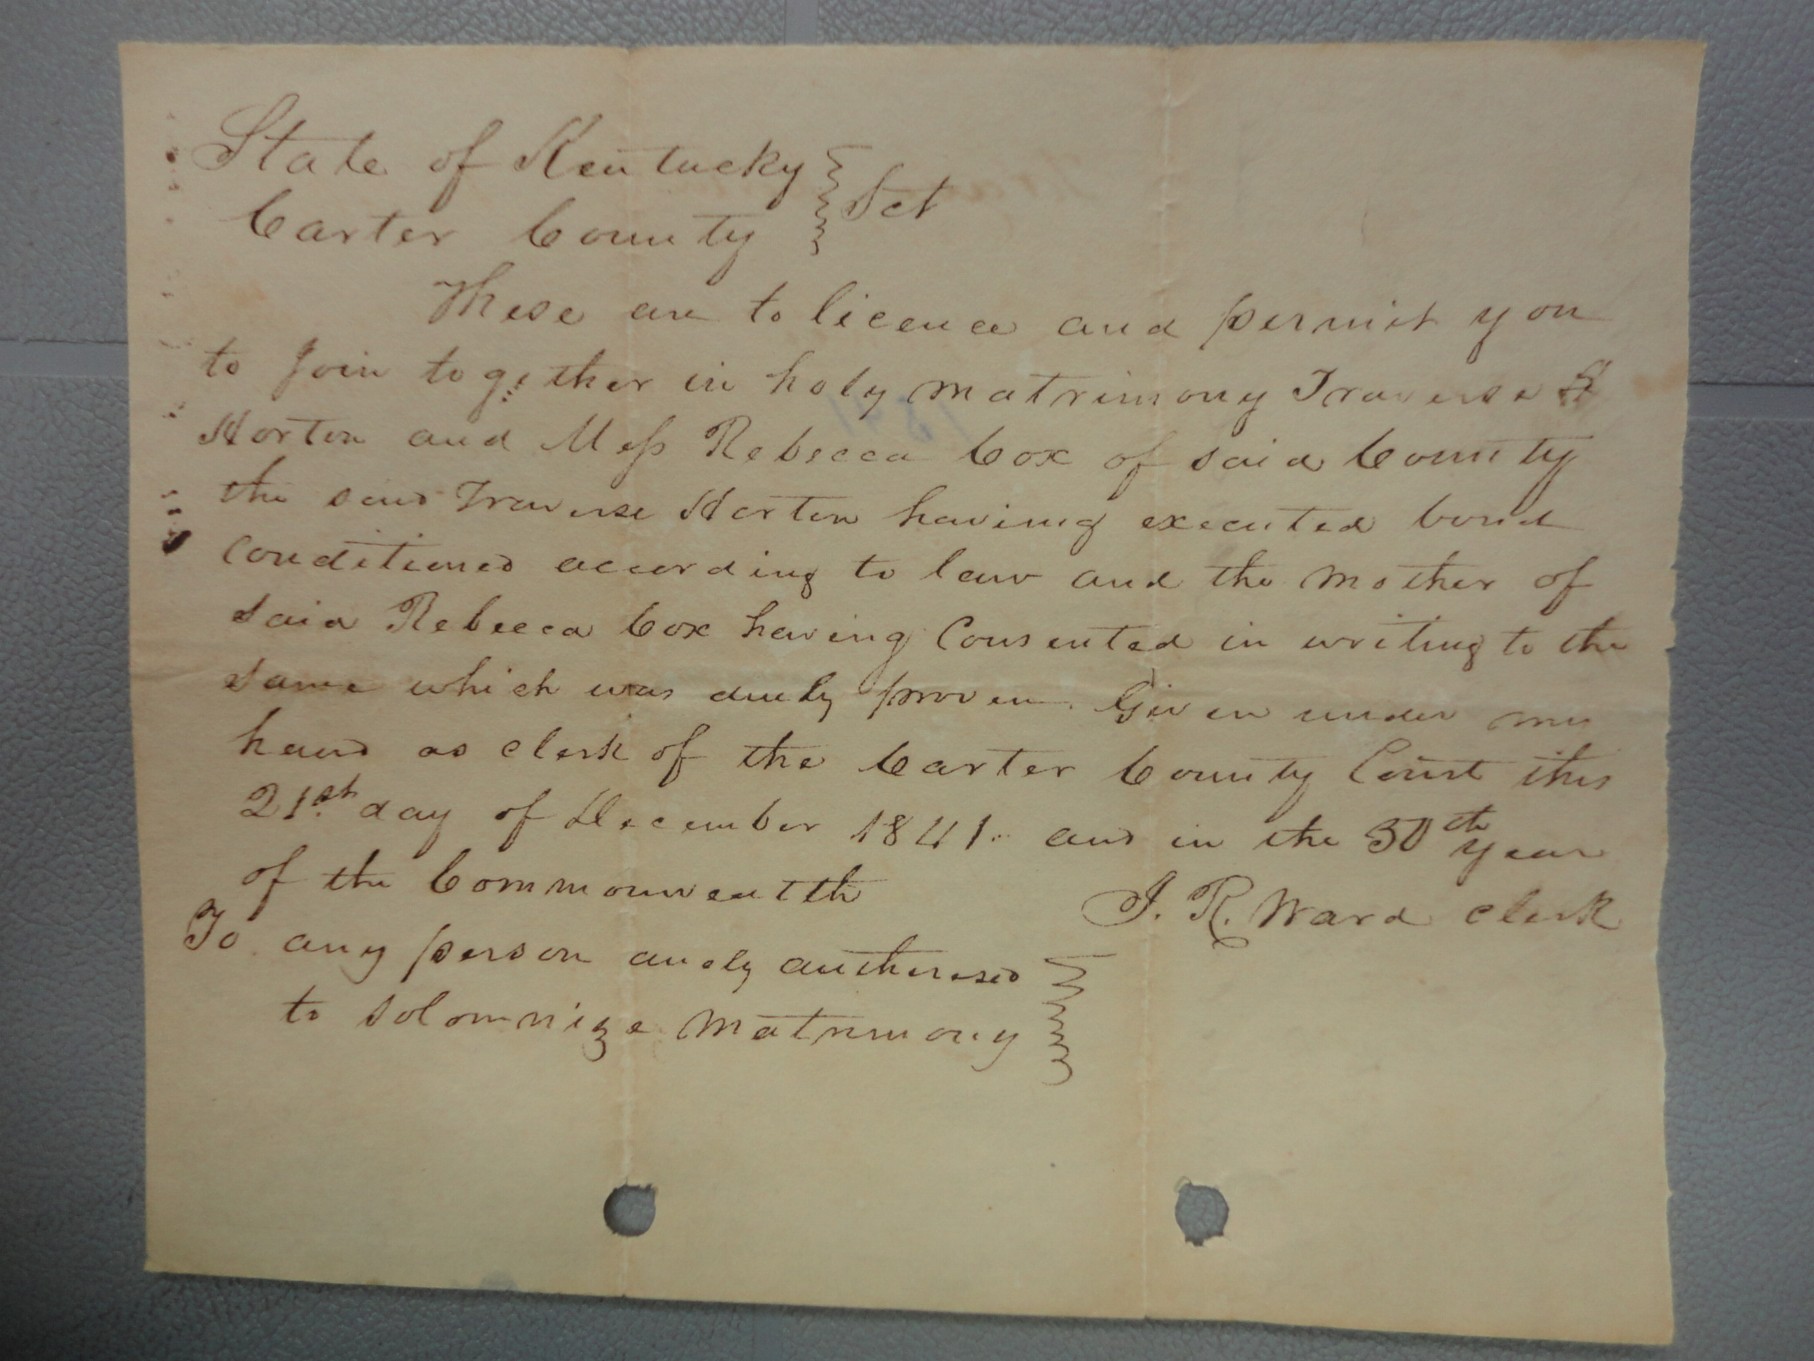 State of Kentucky } Sct
Carter County
These are to licence and permit you
to Join together in holy matrimony Traverse
Horton and Miss Rebecca Cox of said County
the said Traverse Horton having executed bond
conditioned according to law and the mother of
said Rebecca Cox having Consented in writing to the
same which was duely proven. Given under my
hand as clerk of the Carter County Court this
21st day of December 1841. and in the 50th year
of the Commonwealth
J. R. Ward clerk
To any person duely autheresed
to solomnize matrimony }